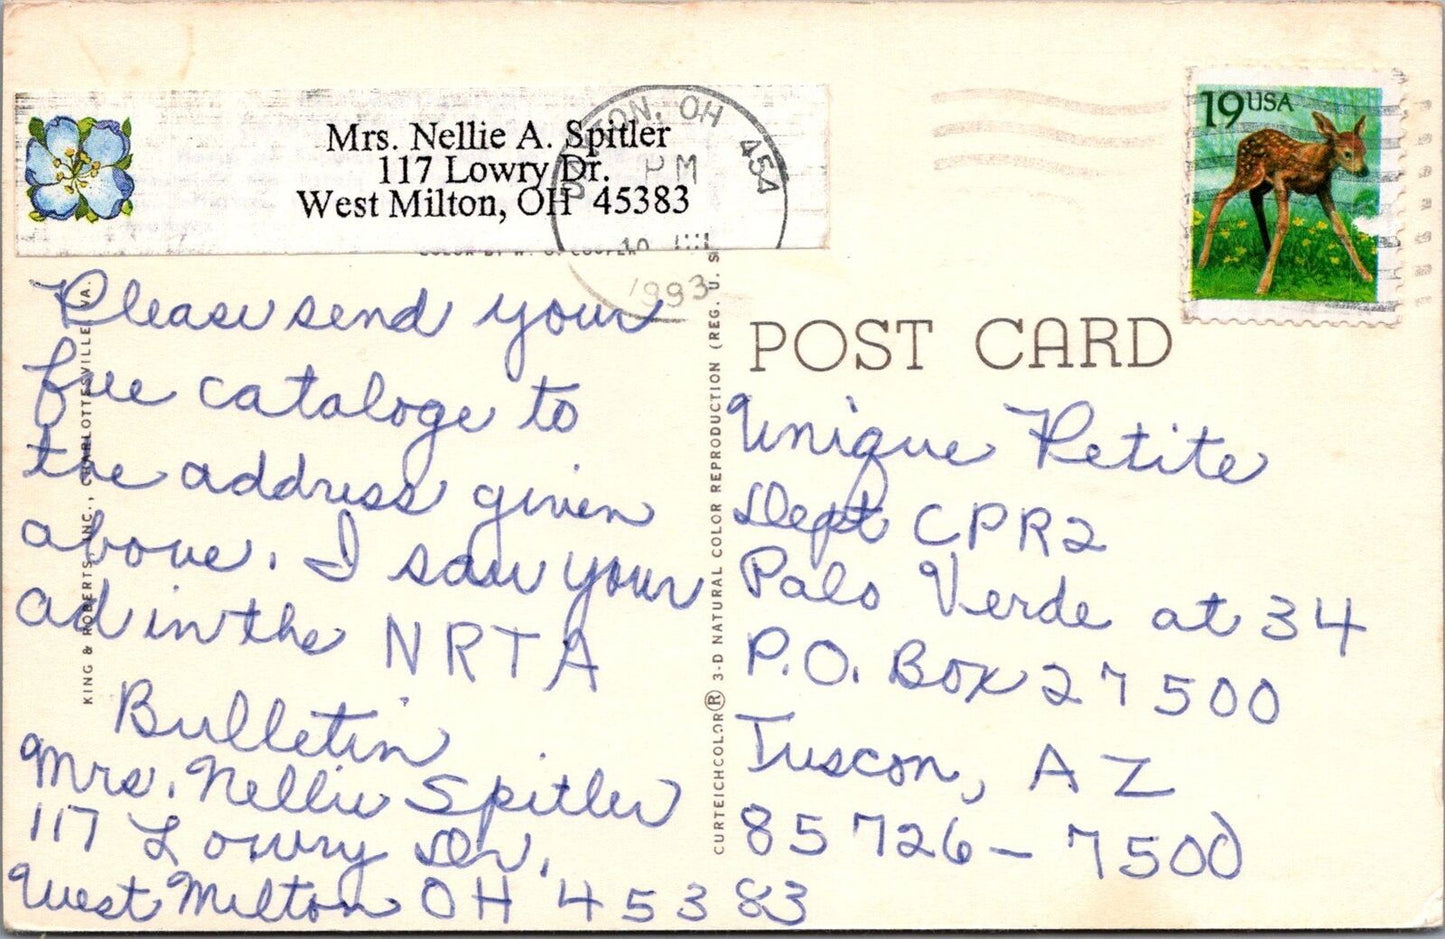 Mrs. Nellie A. Spitler
117 Lowry Dr.
West Milton, OH 45383
TON, OH 454
PM
10
1993
19 USA
POST CARD
Please send your
free cataloge to
the address given
above. I saw your
ad in the NRTA
Bulletin
Mrs. Nellie Spitler
117 Lowry Dr.
West Milton OH 45383
Unique Petite
Dept CPR2
Palo Verde at 34
P.O. Box 27500
Tuscon, AZ
85726-7500
KING & ROBERTS, INC., CHARLOTTESVILLE, VA.
CURTEICHCOLOR® 3-D NATURAL COLOR REPRODUCTION (REG. U. S